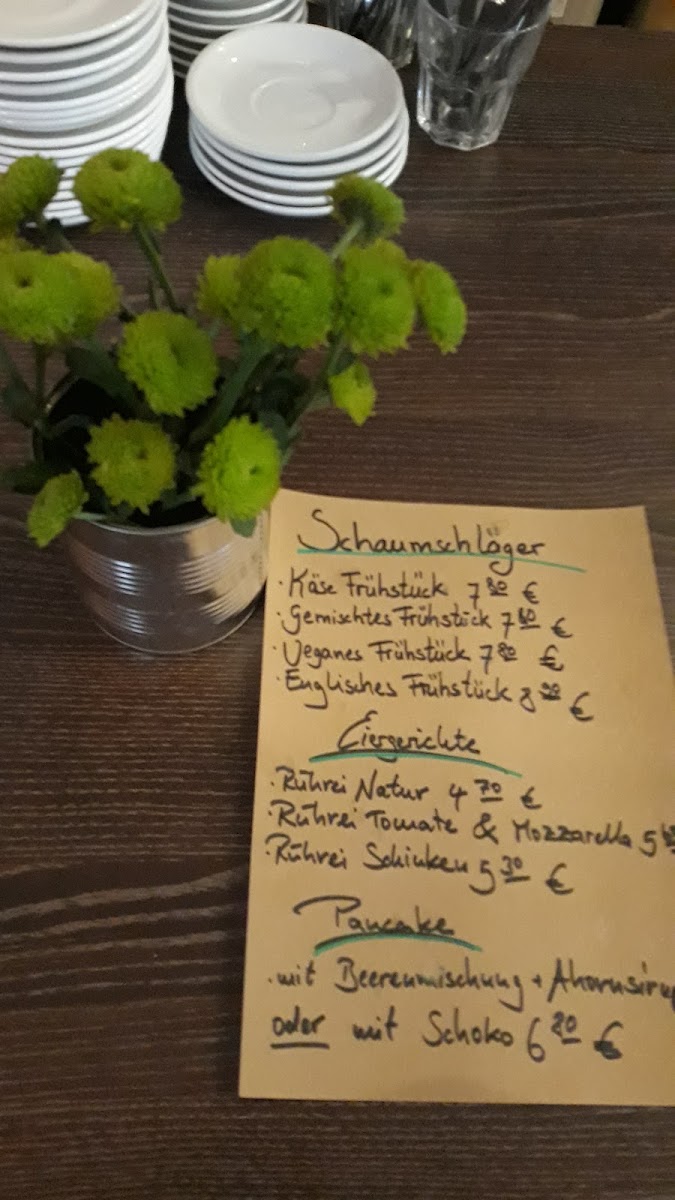 Schaumschläger
· Käse Frühstück 7 80 €
· Gemischtes Frühstück 7 80 €
· Veganes Frühstück 7 80 €
· Englisches Frühstück 8 €
Eiergerichte
· Rührei Natur 4 70 €
· Rührei Tomate & Mozzarella 5
· Rührei Schinken 5 30 €
Pancake
· mit Beerenmischung + Ahornsirup
oder mit Schoko 6 80 €